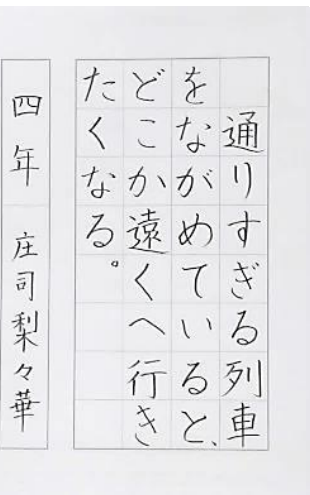 通りすぎる列車
をながめていると、
どこか遠くへ行き
たくなる。
四年 庄司梨々華